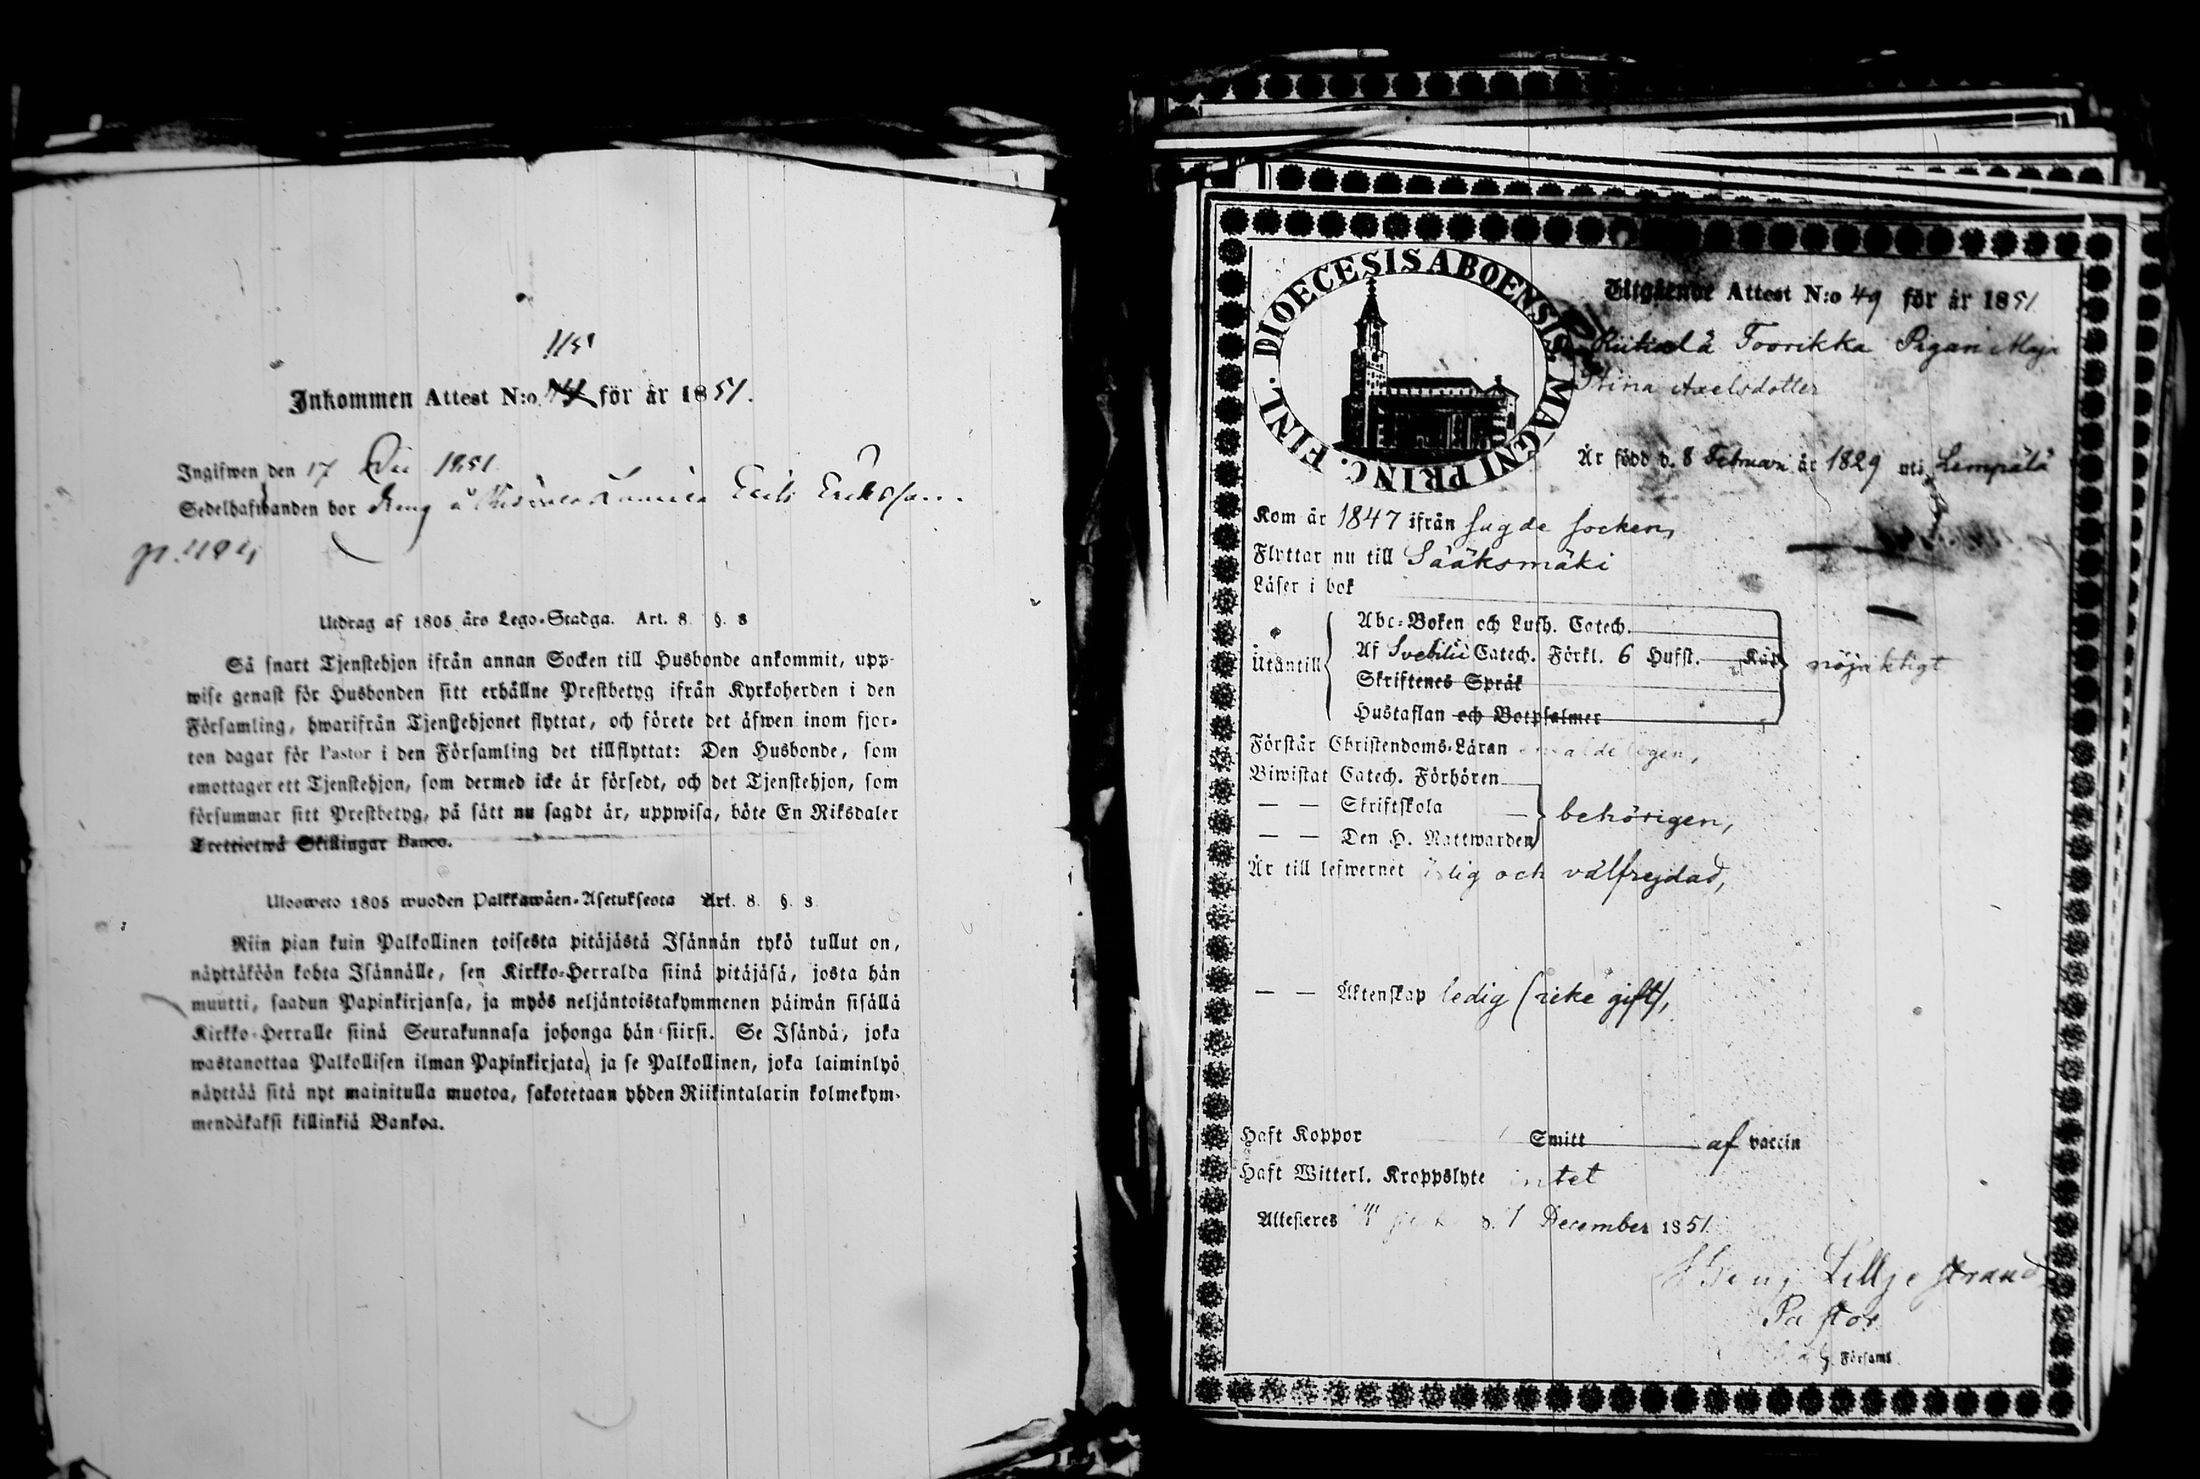 115
Inkommen Attest N:o för år 1851.
Ingifwen den 17 Dec 1851.
Sedelhafwanden bor Dreng å Erik Eriksson.
p. 1184
Utdrag af 1805 års Lego-Stadga. Art. 8. §. 8
Så snart Tjenstehjon ifrån annan Socken till Husbonde ankommit, upp-
wise genast för Husbonden sitt erhållne Prestbetyg ifrån Kyrkoherden i den
Församling, hwarifrån Tjenstehjonet flyttat, och förete det äfwen inom fjor-
ton dagar för Pastor i den Församling det tillflyttat: Den Husbonde, som
emottager ett Tjenstehjon, som dermed icke är försedt, och det Tjenstehjon, som
försummar sitt Prestbetyg, på sätt nu sagdt är, uppwisa, böte En Riksdaler
Trettiotwå Skillingar Banco.
Ulosweto 1805 wuoden Palkkawäen-Asetuksesta Art. 8. §. 8
Niin pian kuin Palkollinen toisesta pitäjästä Isännän tykö tullut on,
näyttäköön kohta Isännälle, sen Kirkko-Herralda siinä pitäjäsä, josta hän
muutti, saadun Papinkirjansa, ja myös neljäntoistakymmenen päiwän sisällä
Kirkko-Herralle siinä Seurakunnasa johonga hän siirsi. Se Isändä, joka
wastanottaa Palkollisen ilman Papinkirjata, ja se Palkollinen, joka laiminlyö
näyttää sitä nyt mainitulla muotoa, sakotetaan yhden Riikintalarin kolmekym-
mendäkaksi killinkiä Bankoa.
DIOECESIS ABOENSIS. MAGNI PRINC. FINL.
Utgående Attest N:o 49 för år 1851.
Toorikka Pigan Maja
Stina Axelsdotter
Är född d. 8 Februari år 1829 uti Lempälä
Kom år 1847 ifrån sagde socken,
Flyttar nu till Sääksmäki
Läser i bok
Utantill
Abc-Boken och Luth. Catech.
Af Svebilii Catech. Förkl. 6 Hufst. Käp
Skriftenes Språk
Hustaflan och Botpsalmer
nöjaktigt
Förstår Christendoms-Läran
Biwistat Catech. Förhören
— — Skriftskola
— — Den H. Nattwarden
behörigen,
Är till lefwernet och välfrejdad,
— — Äktenskap ledig (icke gift),
Haft Koppor Smitt af vaccin
Haft Witterl. Kroppslyte intet
Attesteres d. 7 December 1851.
Lilljestrand
Pastor
Församl.